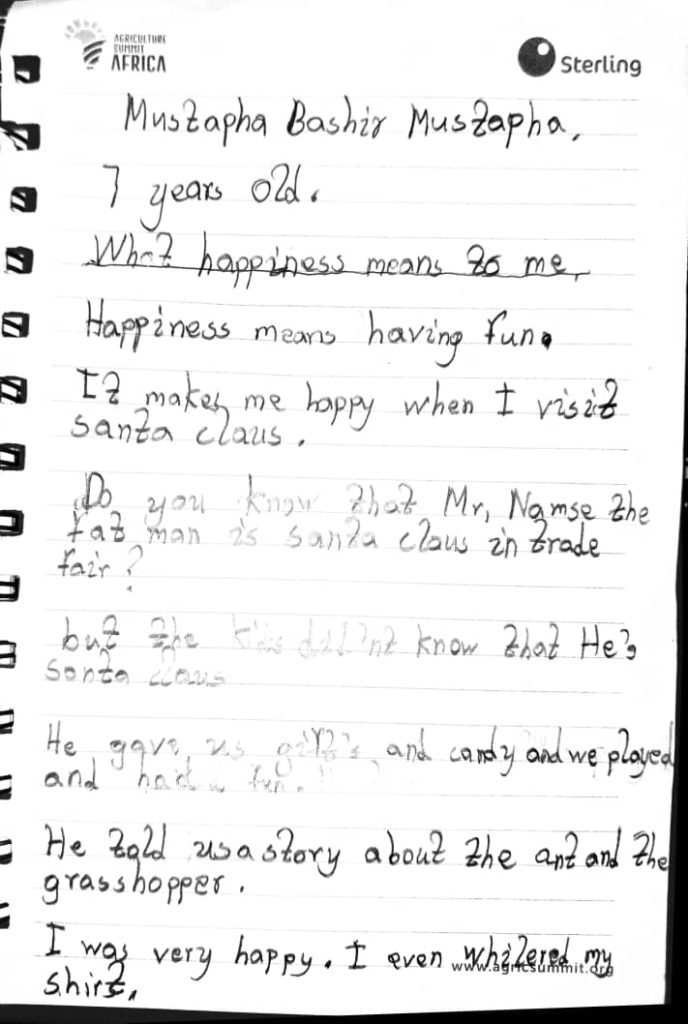 AGRICULTURE
SUMMIT
AFRICA
Sterling
Mustapha Bashir Mustapha.
7 years old.
What happiness means to me.
Happiness means having fun.
It makes me happy when I visit
santa claus.
Do you know that Mr, Namse the
fat man is santa claus in trade
fair?
but the kids did'nt know that He's
santa claus
He gave us gift's and candy and we played
and had fun.
He told us a story about the ant and the
grasshopper.
I was very happy. I even whitered my
shirt.
www.agricsummit.org